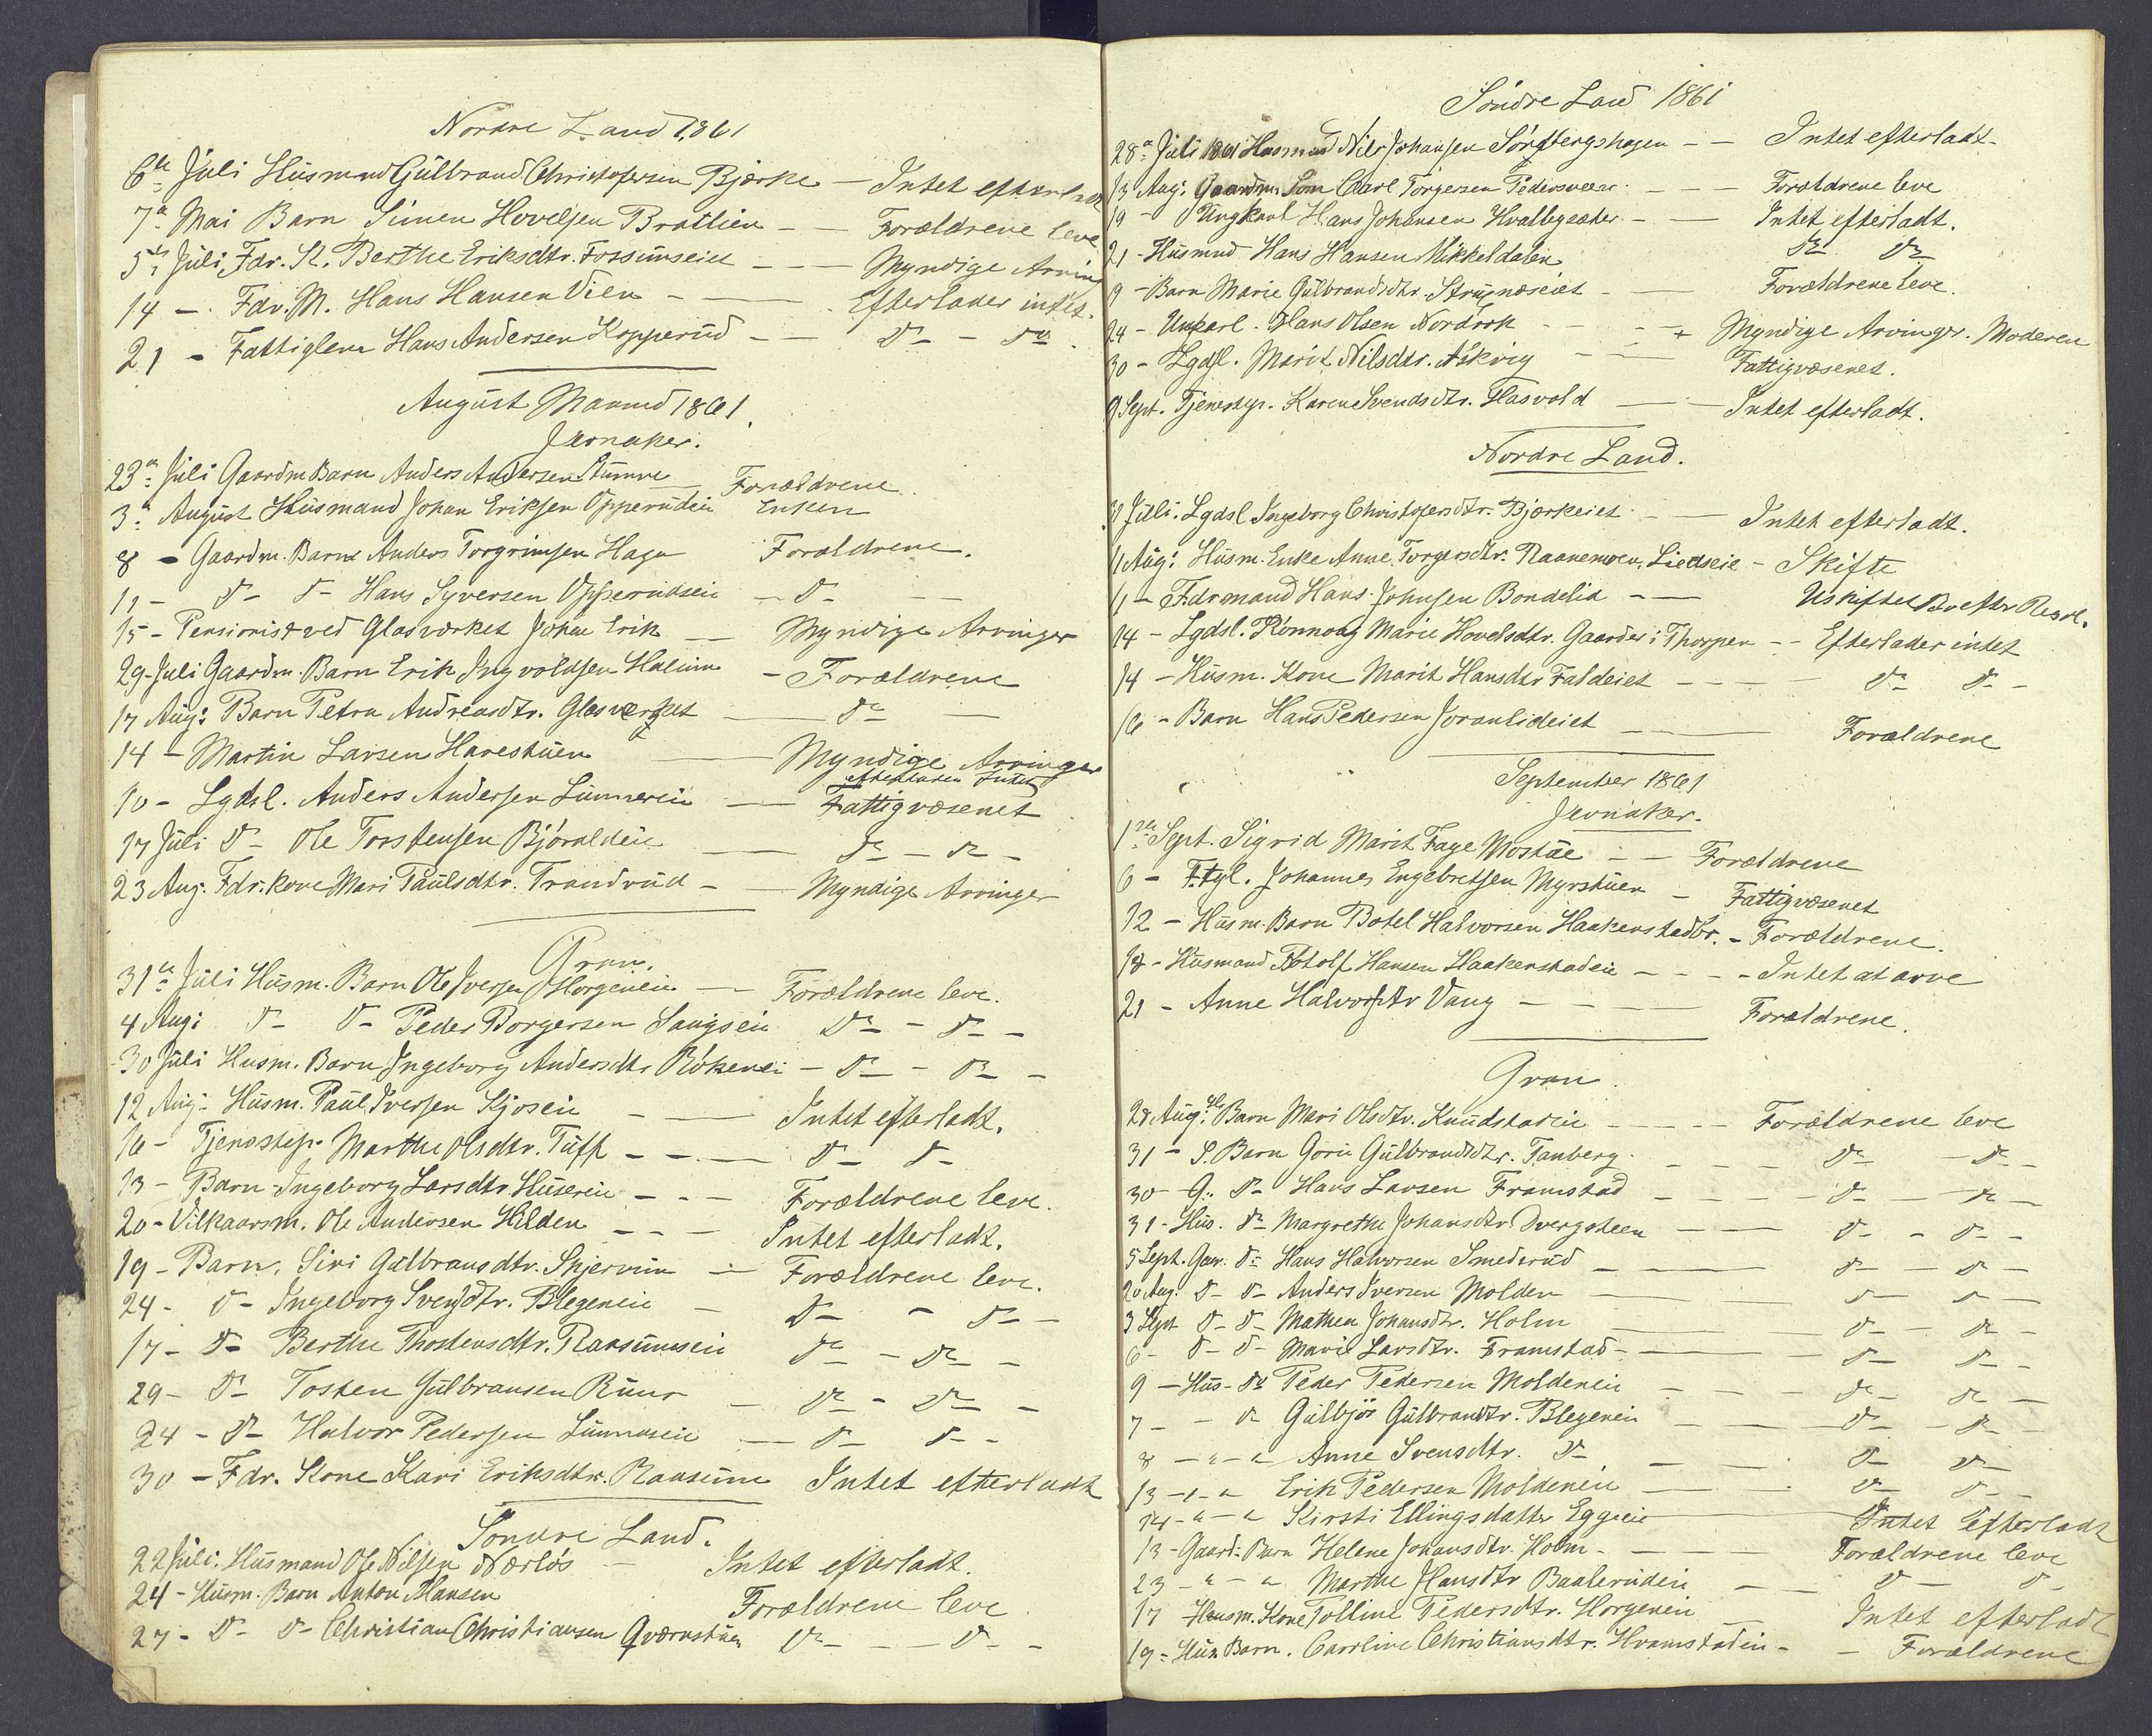 Nordre Land 1861
6te Juli Husmand Gulbrand Christofersen Bjørke - Intet efterladt
7de Mai Barn Simen Hovelsen Bratlien - - Forældrene leve
5te Juli Fdr. K. Berthe Eriksdtr. Fossumseiet - - - Myndige Arvin
14 - Fdr. M. Hans Hansen Vien - - Efterlader intet.
21 - Fattiglem Hans Andersen Kopperud - - Do - Do
August Maaned 1861.
Jevnaker.
23de Juli Gaardm Barn Anders Andersen Stumne - Forældrene
3de August Husmand Johan Eriksen Opperudeie Enken
8 - Gaardm. Barn Anders Torgrimsen Haga Forældrene.
11 - Do Do Hans Syversen Opperudseie - Do - -
15 - Pensionist ved Glasværket Johan Erik - Myndige Arvinger
29 - Juli Gaardm. Barn Erik Ingvoldsen Halum - Forældrene
17 Aug: Barn Petra Andreasdtr. Glasverket - Do -
14 - Martin Larsen Harestuen - Myndige Arvinger
efterladen Intet
10 - Lgdsl. Anders Andersen Sunnereie - Fattigvæsenet
17 Juli Do Ole Torstensen Bjóraldeie - Do - Do -
23 Aug. Fdr. kone Mari Paulsdtr. Trandrud - - Myndige Arvinger
Gran.
31te Juli Husm. Barn Ole Iversen Horgeneie - Forældrene leve.
4 Aug: Do Do Peder Borgersen Saugseie Do - Do -
30 Juli Husm. Barn Ingeborg Andersdtr Rókenei - Do - Do -
12 Aug - Husm. Paul Iversen Kjoseie - - Intet efterladt.
16 - Tjenestep. Marthe Olsdtr. Tuft - - - Do Do
13 - Barn Ingeborg Larsdtr Husereie - - - Forældrene leve.
20 - Vilkaarsm. Ole Andersen Hilden - - - Intet efterladt.
19 - Barn, Siri Gulbransdtr. Skjervum - Forældrene leve.
24 - Do Ingeborg Svendtr. Blegeneie - Do - Do -
17 - Do Berthe Thostensdtr. Raasumseie Do - Do -
29 - Do Tosten Gulbransen Ruur - Do - Do -
24 - Do Halvor Pedersen Sunnaseie - Do Do -
30 - Fdr. Kone Kari Eriksdtr. Raasum Intet efterladt
Søndre Land.
22 Juli. Husmand Ole Nilsen Nerlós - Intet efterladt.
24 - Husm. Barn Anton Hansen Forældrene leve
27 - Do Do Christian Christiansen Qværnstuen Do - - Do -
Søndre Land 1861
28de Juli 1861 Husmand Nils Johansen Sørflbergshagen - - Intet efterladt -
13 Aug: Gaardm. Søn Carl Torgersen Pedersveen - - - Forældrene leve
19 - Ungkarl Hans Johansen Hvalbysæter - - Intet efterladt.
21 - Husmnd Hans Hansen Mikkeldalen Do Do
9 - Barn Marie Gulbrandsdtr. Strugnæseiet - - Forældrene leve.
24 - Unkarl. Hans Olsen Nordrok - - - + Myndige Arvinger. Moderen
30 - Lgdsl. Marit Nilsdtr. Askvig - - Fattigvæsenet.
9 Sept. Tjenestep. Karen Svendsdtr. Hasvold - - Intet efterladt.
Nordre Land.
31 Juli. Lgdsl Ingeborg Christofersdtr. Bjørkeiet - - Intet efterladt.
11 Aug: Husm. Enke Anne Torgersdtr. Raanemoen, Liedseie - Skifte
11 - Fdrmand Hans Johnsen Bondelia - - Uskiftet Bo eftr Resol.
14 - Lgdsl. Rønnoug Marie Hovelsdtr. Gaarder i Thorpen - - Efterlader intet
14 - Husm. Kone Marit Hansdtr Faldeiet - - - - Do Do -
16 - Barn Hans Pedersen Joranlideiet - - - Forældrene
September 1861
Jevnaker.
1ste Sept. Sigrid Marit Fage Mostue - - Forældrene
6 - Ftgl. Johannes Engebretsen Myrstuen - Fattigvæsenet
12 - Husm. Barn Botel Halvorsen Haakenstadbr. - Forældrene.
18 - Husmand Botolf Hansen Haakenstadeie - - - - Intet at arve
21 - Anne Halvorsdtr Vang - - - Forældrene.
Gran.
28 Aug: Barn Mari Olsdtr. Knudstadeie - - - - Forældrene leve
31 - S. Barn Goro Gulbrandsdtr. Tanberg - - - - Do - Do -
30 G. Do Hans Larsen Framstad - - - Do - Do -
31 - Hus. Do Margrethe Johansdtr Dvergsteen - - Do - Do -
5 Sept. Gaar. Do Hans Halvorsen Smederud - - - Do - Do -
20 Aug. Do Do Anders Iversen Molden - - - Do Do -
3 Sept Do Do Mathea Johansdtr. Holm - - Do - Do -
6 - Do Do Marie Larsdtr. Framstad - - - Do Do -
9 - Hus - Do Peder Pedersen Moldeneie - - - Do - Do -
7 - - Do Gulbjør Gulbrandtr. Blegeneie - - - Do - Do -
8 - " - " Anne Svensdtr. Do - - - Do Do
13 - " - " Erik Pedersen Moldeneie - Do Do -
14 - " - " Kirsti Ellingsdatter Eggeeie Intet Efterladt
13 - Gaard. Barn Helene Johansdtr. Holm - - - Forældrene leve
23 - " - " Marthe Hansdtr Baalerudeie - - Do Do -
17 Husm. Kone Polline Pedersdtr. Horgeneie - Intet efterladt
19 - Hus Barn. Caroline Christiansdtr. Hvamstadeie - - Forældrene